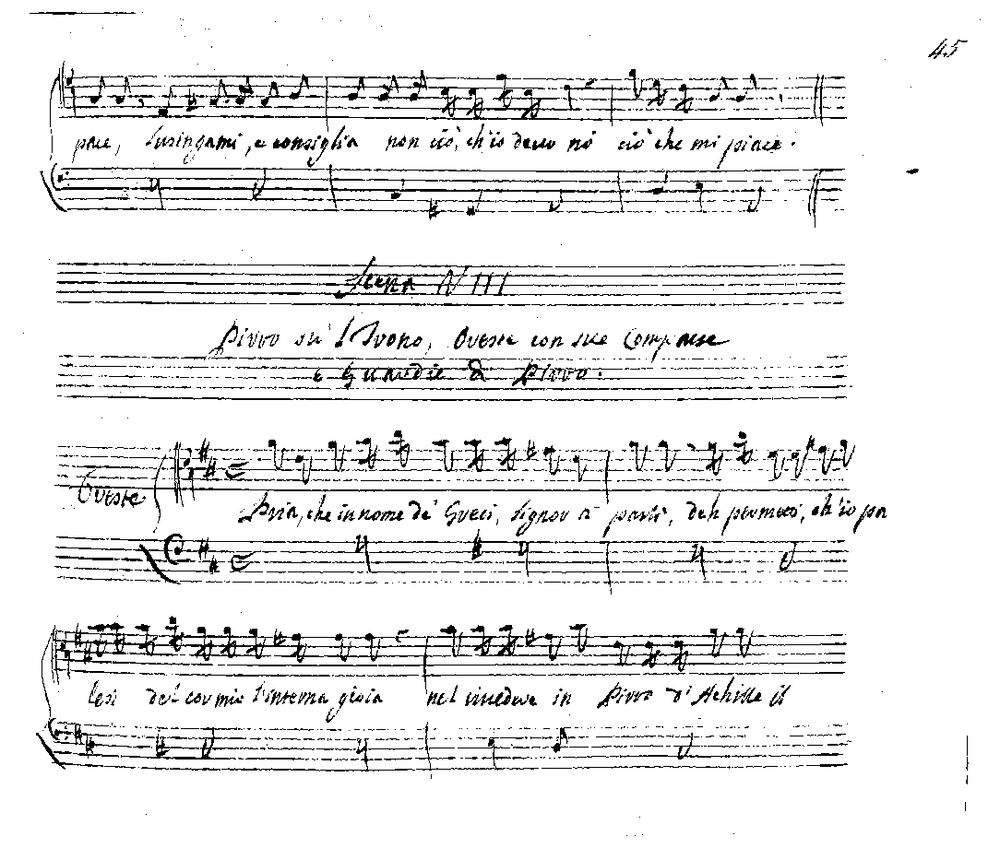 45
pace, lusingami, e consiglia non ciò, ch'io devo no ciò che mi piace.
Scena N III
Pirro su'l Trono, Oreste con sue Comparse
e Guardie di Pirro.
Oreste
Pria, che in nome de' Greci, Signor ti parli, deh permetti, ch'io pa
lesi del cor mio l'interna gioia nel rivedere in Pirro d'Achille il